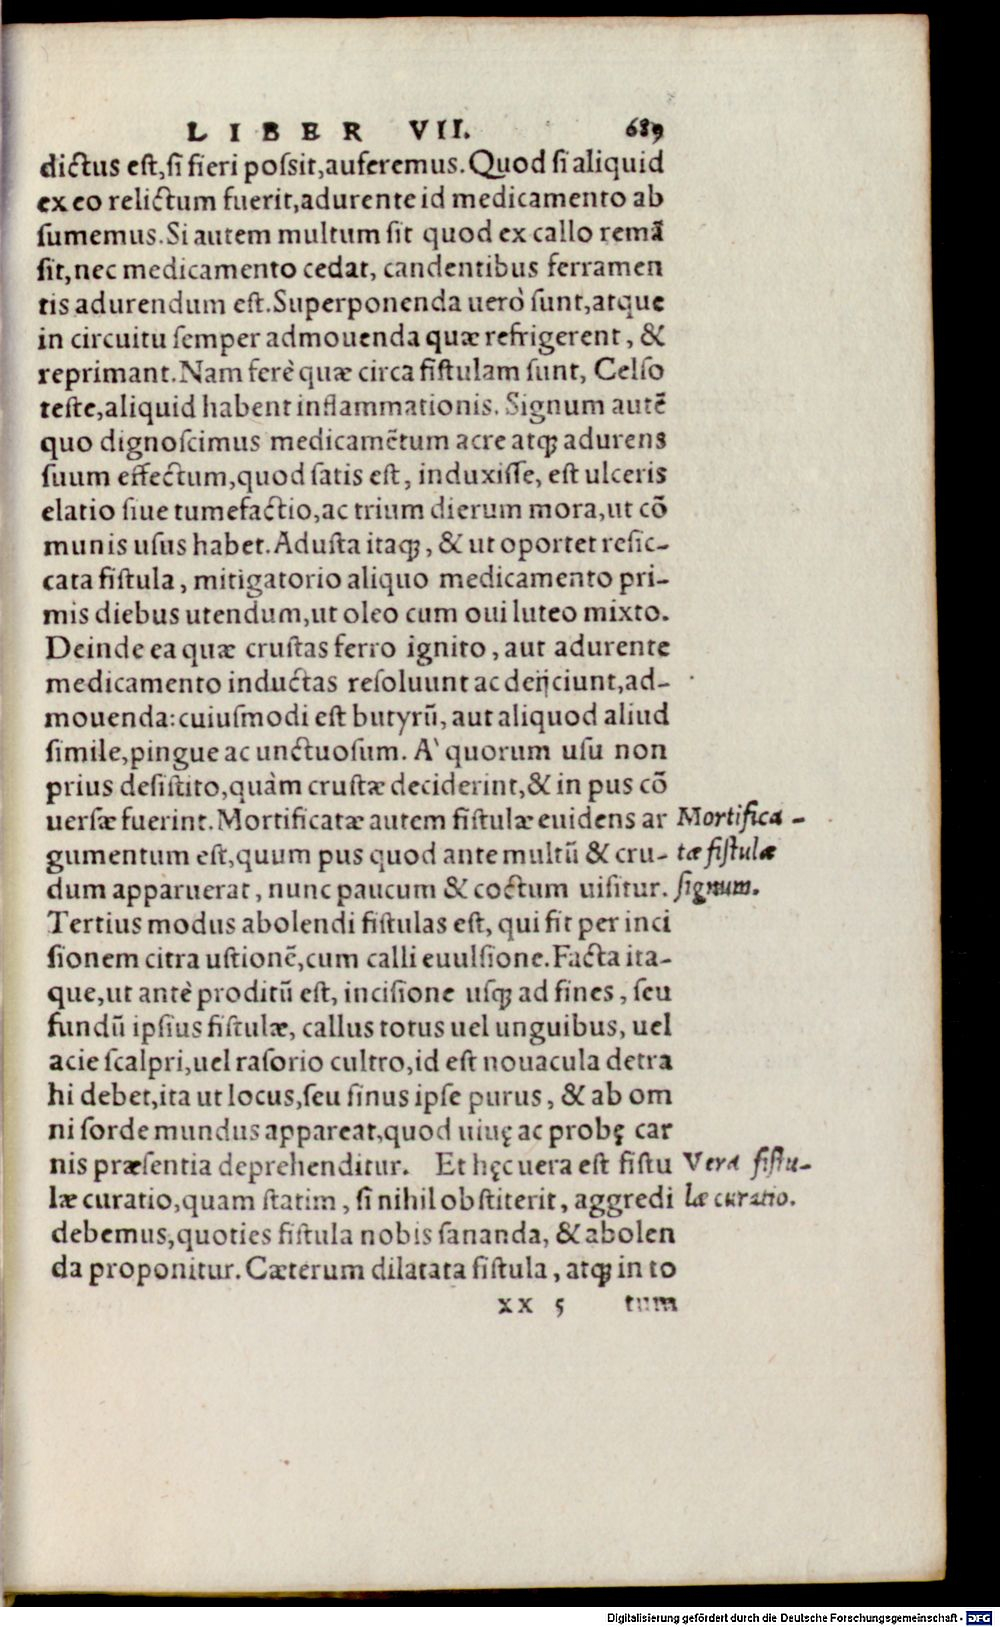 LIBER VII. 689
dictus est, si fieri possit, auferemus. Quod si aliquid
ex eo relictum fuerit, adurente id medicamento ab
sumemus. Si autem multum sit quod ex callo remā
sit, nec medicamento cedat, candentibus ferramen
tis adurendum est. Superponenda uerò sunt, atque
in circuitu semper admouenda quæ refrigerent, &
reprimant. Nam ferè quæ circa fistulam sunt, Celso
teste, aliquid habent inflammationis. Signum autē
quo dignoscimus medicamētum acre atq; adurens
suum effectum, quod satis est, induxisse, est ulceris
elatio siue tumefactio, ac trium dierum mora, ut cō
munis usus habet. Adusta itaq;, & ut oportet resic-
cata fistula, mitigatorio aliquo medicamento pri-
mis diebus utendum, ut oleo cum oui luteo mixto.
Deinde ea quæ crustas ferro ignito, aut adurente
medicamento inductas resoluunt ac deijciunt, ad-
mouenda: cuiusmodi est butyrū, aut aliquod aliud
simile, pingue ac unctuosum. A' quorum usu non
prius desistito, quàm crustæ deciderint, & in pus cō
uersæ fuerint. Mortificatæ autem fistulæ euidens ar
gumentum est, quum pus quod ante multū & cru-
dum apparuerat, nunc paucum & coctum uisitur.
Mortifica-
tæ fistulæ
signum.
Tertius modus abolendi fistulas est, qui fit per inci
sionem citra ustionē, cum calli euulsione. Facta ita-
que, ut antè proditū est, incisione usq; ad fines, seu
fundū ipsius fistulæ, callus totus uel unguibus, uel
acie scalpri, uel rasorio cultro, id est nouacula detra
hi debet, ita ut locus, seu sinus ipse purus, & ab om
ni sorde mundus appareat, quod uiuę ac probę car
nis præsentia deprehenditur. Et hęc uera est fistu
læ curatio, quam statim, si nihil obstiterit, aggredi
Vera fistu-
læ curatio.
debemus, quoties fistula nobis sananda, & abolen
da proponitur. Cæterum dilatata fistula, atq; in to
xx 5 tum
Digitalisierung gefördert durch die Deutsche Forschungsgemeinschaft - DFG